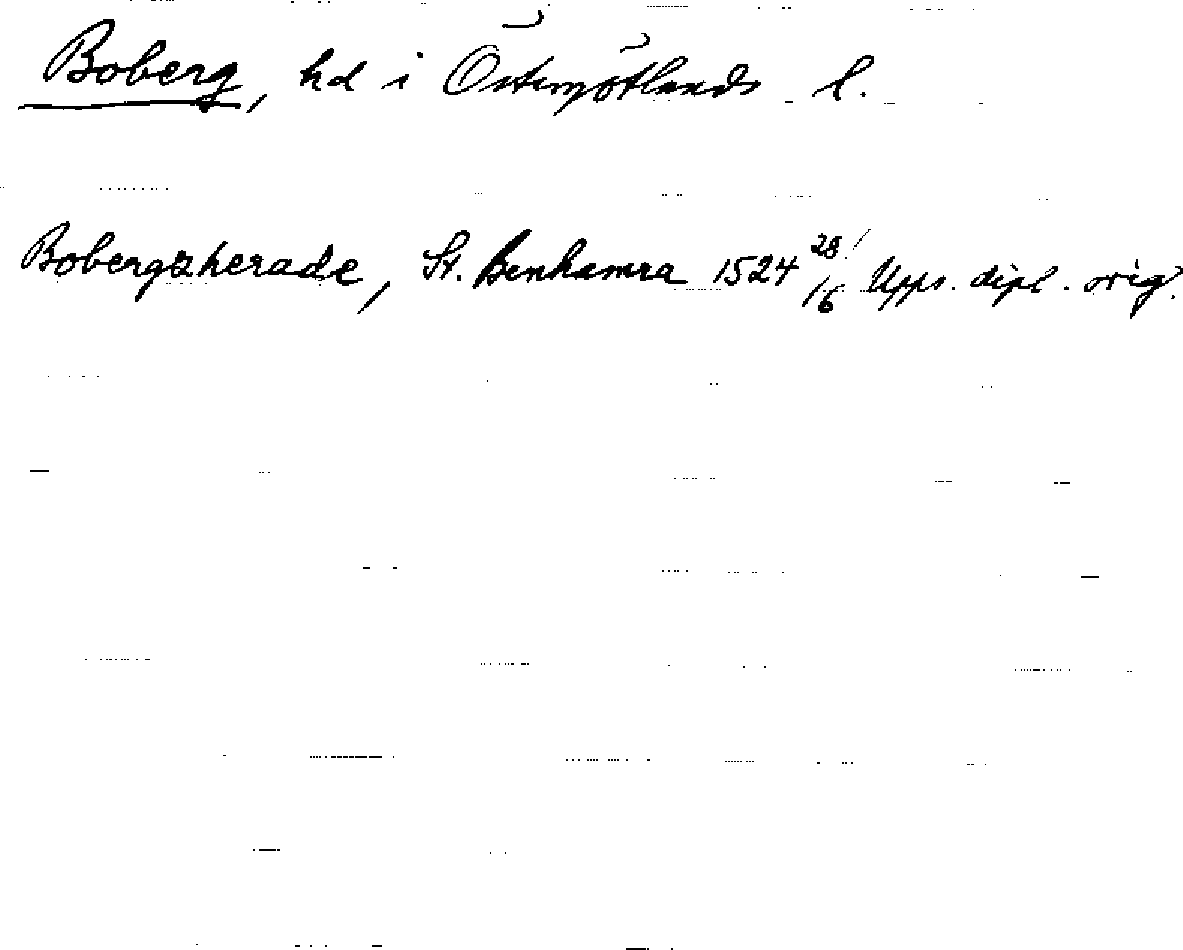 Boberg, hd i Östergötlands l.
Bobergsherade, St. Benhamra 1524 28/6 Upps. dipl. orig.